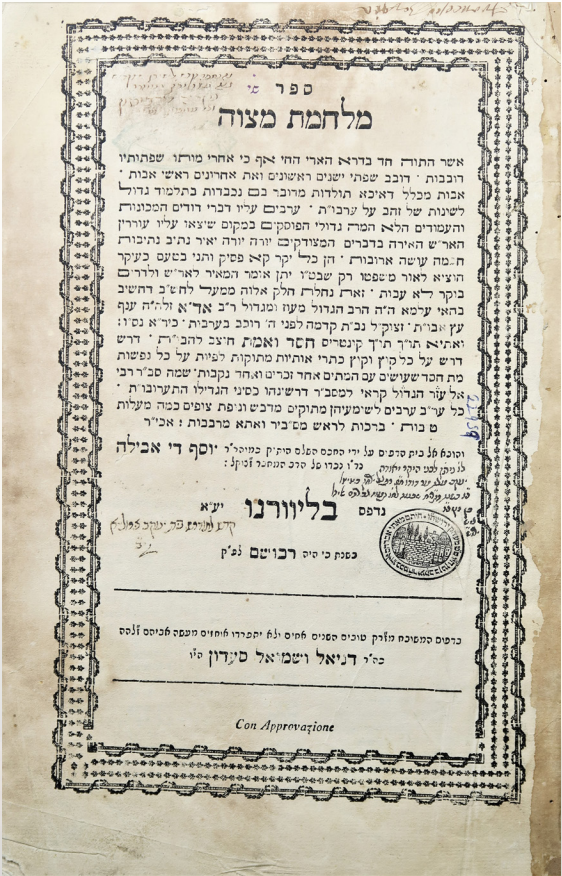 ספר
מלחמת מצוה
אשר התורה חד בדרא הארי החי אף כי אחרי מותו שפתותיו
דובבות · דובב שפתי ישנים ראשונים ואת אחרונים ראשי אבות ·
אבות מכלל דאיכא תולדות מדובר בם נכבדות בתלמוד גדול
לשונות של זהב על ערבו״ת · ערבים עליו דברי דודים המכונות
והעמודים הלא המה גדולי הפוסקים במקום שיצאו עליו עוררין
הארי״ש האירה בדברים המצודקים יורה יורה יאיר נתיב נתיבות
חכמה עושה ארובות · הן כל יקר קא פסיק ותני בטעם כעיקר
הוציא לאור משפטו רק שבט״ו יתן אומר המאיר לאר״ש ולדרים
בוקר לא עבות · זאת נחלת חלק אלוה ממעל לחש״ב דחשיב
בהאי עלמא ה״ה הרב הגדול מעוז ומגדול ר״ב אד״א זלה״ה ענף
עץ אבו״ת · זצוק״ל נב״ת קדמה לפני ה׳ רוכב בערבות ·
ואתיא תו״ך תו״ך קינטריס חסד ואמת חוצב להבו״ת · דרש
דרש על כל קוץ וקוץ כתרי אותיות מתוקות לפיות על כל נפשות
מת חסד שעושים עם המתים אחד זכרים ואחד נקבות׳ שמח סב״ר רבי
אל עזר הגדול קראי למסב״ר דרשינהו כסיני הגדילו התערובו״ת ·
כל ער״ב ערבים לשימעיהן מתוקים מדבש ונופת צופים כמה מעלות
טובות · ברכות לראש מסביר ואתא מרבבות : אכי״ר
והובא אל בית הדפוס על ידי החכם השלם הותיק כמוהר״ר יוסף די אבילה
נר״ו נכדו של הרב המחבר זצוקל :
נדפס בליוורנו יע״א
בשנת כי היה רכושם לפ״ק
בדפוס המשובח מזרק טובים השנים אחים ולא יתפרדו אוחזים מעשה אביהם זלהה
כה״ר דניאל ושמואל סעדון הי״ו
Con Approvazione